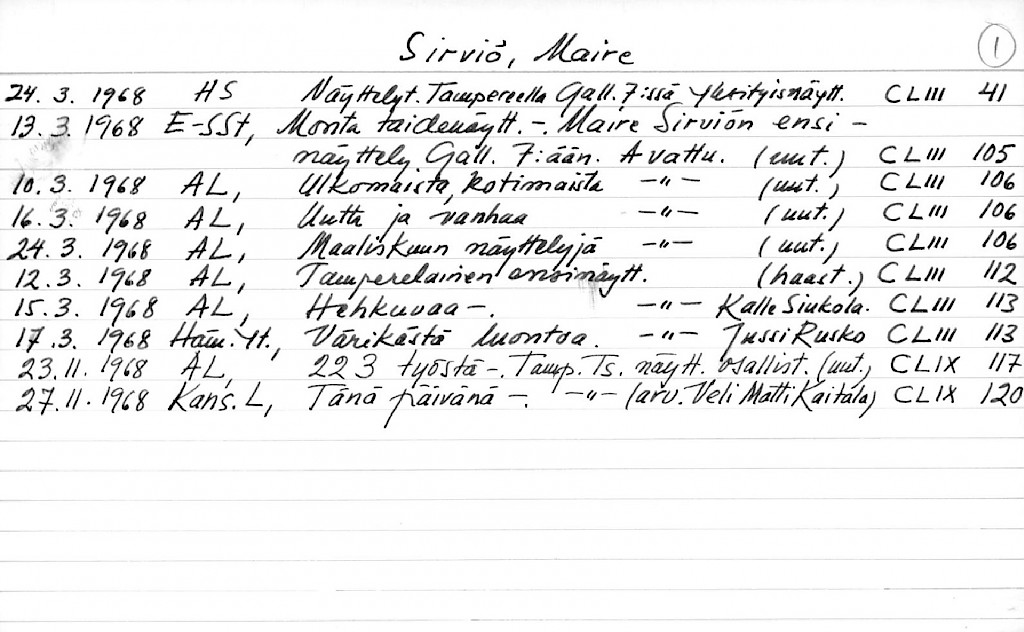 Sirviö, Maire 1
24. 3. 1968 HS Näyttelyt. Tampereella Gall. 7:ssä yksityisnäytt. CLIII 41
13. 3. 1968 E-SSt, Monta taidenäytt. -. Maire Sirviön ensi-
näyttely Gall. 7:ään. Avattu. (uut.) CLIII 105
10. 3. 1968 AL, Ulkomaista, kotimaista -"- (uut.) CLIII 106
16. 3. 1968 AL, Uutta ja vanhaa -"- (uut.) CLIII 106
24. 3. 1968 AL, Maaliskuun näyttelyjä -"- (uut.) CLIII 106
12. 3. 1968 AL, Tamperelainen ensinäytt. (haast.) CLIII 112
15. 3. 1968 AL, Hehkuvaa -. -"- Kalle Sinkola. CLIII 113
17. 3. 1968 Häm. Yt., Värikästä luontoa. -"- Jussi Rusko CLIII 113
23. 11. 1968 AL, 223 työstä -. Tamp. Ts. näytt. osallist. (uut.) CLIX 117
27. 11. 1968 Kans. L, Tänä päivänä -. -"- (arv. Veli Matti Kaitala) CLIX 120